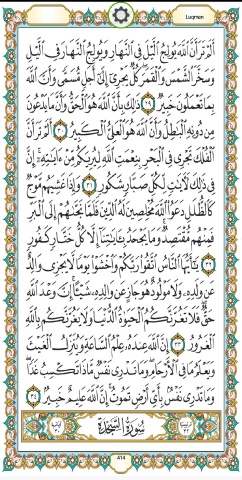 Luqman
أَلَمْ تَرَ أَنَّ ٱللَّهَ يُولِجُ ٱلَّيْلَ فِي ٱلنَّهَارِ وَيُولِجُ ٱلنَّهَارَ فِي ٱلَّيْلِ
وَسَخَّرَ ٱلشَّمْسَ وَٱلْقَمَرَ كُلٌّ يَجْرِيٓ إِلَىٰٓ أَجَلٍ مُّسَمًّى وَأَنَّ ٱللَّهَ
بِمَا تَعْمَلُونَ خَبِيرٌ ٢٩ ذَٰلِكَ بِأَنَّ ٱللَّهَ هُوَ ٱلْحَقُّ وَأَنَّ مَا يَدْعُونَ
مِن دُونِهِ ٱلْبَٰطِلُ وَأَنَّ ٱللَّهَ هُوَ ٱلْعَلِيُّ ٱلْكَبِيرُ ٣٠ أَلَمْ تَرَ أَنَّ
ٱلْفُلْكَ تَجْرِي فِي ٱلْبَحْرِ بِنِعْمَتِ ٱللَّهِ لِيُرِيَكُم مِّنْ ءَايَٰتِهِۦٓ إِنَّ
فِي ذَٰلِكَ لَءَايَٰتٍ لِّكُلِّ صَبَّارٍ شَكُورٍ ٣١ وَإِذَا غَشِيَهُم مَّوْجٌ
كَٱلظُّلَلِ دَعَوُا۟ ٱللَّهَ مُخْلِصِينَ لَهُ ٱلدِّينَ فَلَمَّا نَجَّىٰهُمْ إِلَى ٱلْبَرِّ
فَمِنْهُم مُّقْتَصِدٌ وَمَا يَجْحَدُ بِـَٔايَٰتِنَآ إِلَّا كُلُّ خَتَّارٍ كَفُورٍ
٣٢ يَٰٓأَيُّهَا ٱلنَّاسُ ٱتَّقُوا۟ رَبَّكُمْ وَٱخْشَوْا۟ يَوْمًا لَّا يَجْزِي وَالِدٌ
عَن وَلَدِهِۦ وَلَا مَوْلُودٌ هُوَ جَازٍ عَن وَالِدِهِۦ شَيْـًٔا إِنَّ وَعْدَ ٱللَّهِ
حَقٌّ فَلَا تَغُرَّنَّكُمُ ٱلْحَيَوٰةُ ٱلدُّنْيَا وَلَا يَغُرَّنَّكُم بِٱللَّهِ
ٱلْغَرُورُ ٣٣ إِنَّ ٱللَّهَ عِندَهُۥ عِلْمُ ٱلسَّاعَةِ وَيُنَزِّلُ ٱلْغَيْثَ
وَيَعْلَمُ مَا فِي ٱلْأَرْحَامِ وَمَا تَدْرِي نَفْسٌ مَّاذَا تَكْسِبُ غَدًا
وَمَا تَدْرِي نَفْسٌۢ بِأَيِّ أَرْضٍ تَمُوتُ إِنَّ ٱللَّهَ عَلِيمٌ خَبِيرٌۢ ٣٤
سُورَةُ السَّجْدَةِ
414